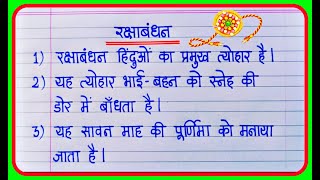 रक्षाबंधन
1) रक्षाबंधन हिंदुओं का प्रमुख त्योहार है।
2) यह त्योहार भाई-बहन को स्नेह की
डोर में बाँधता है।
3) यह सावन माह की पूर्णिमा को मनाया
जाता है।